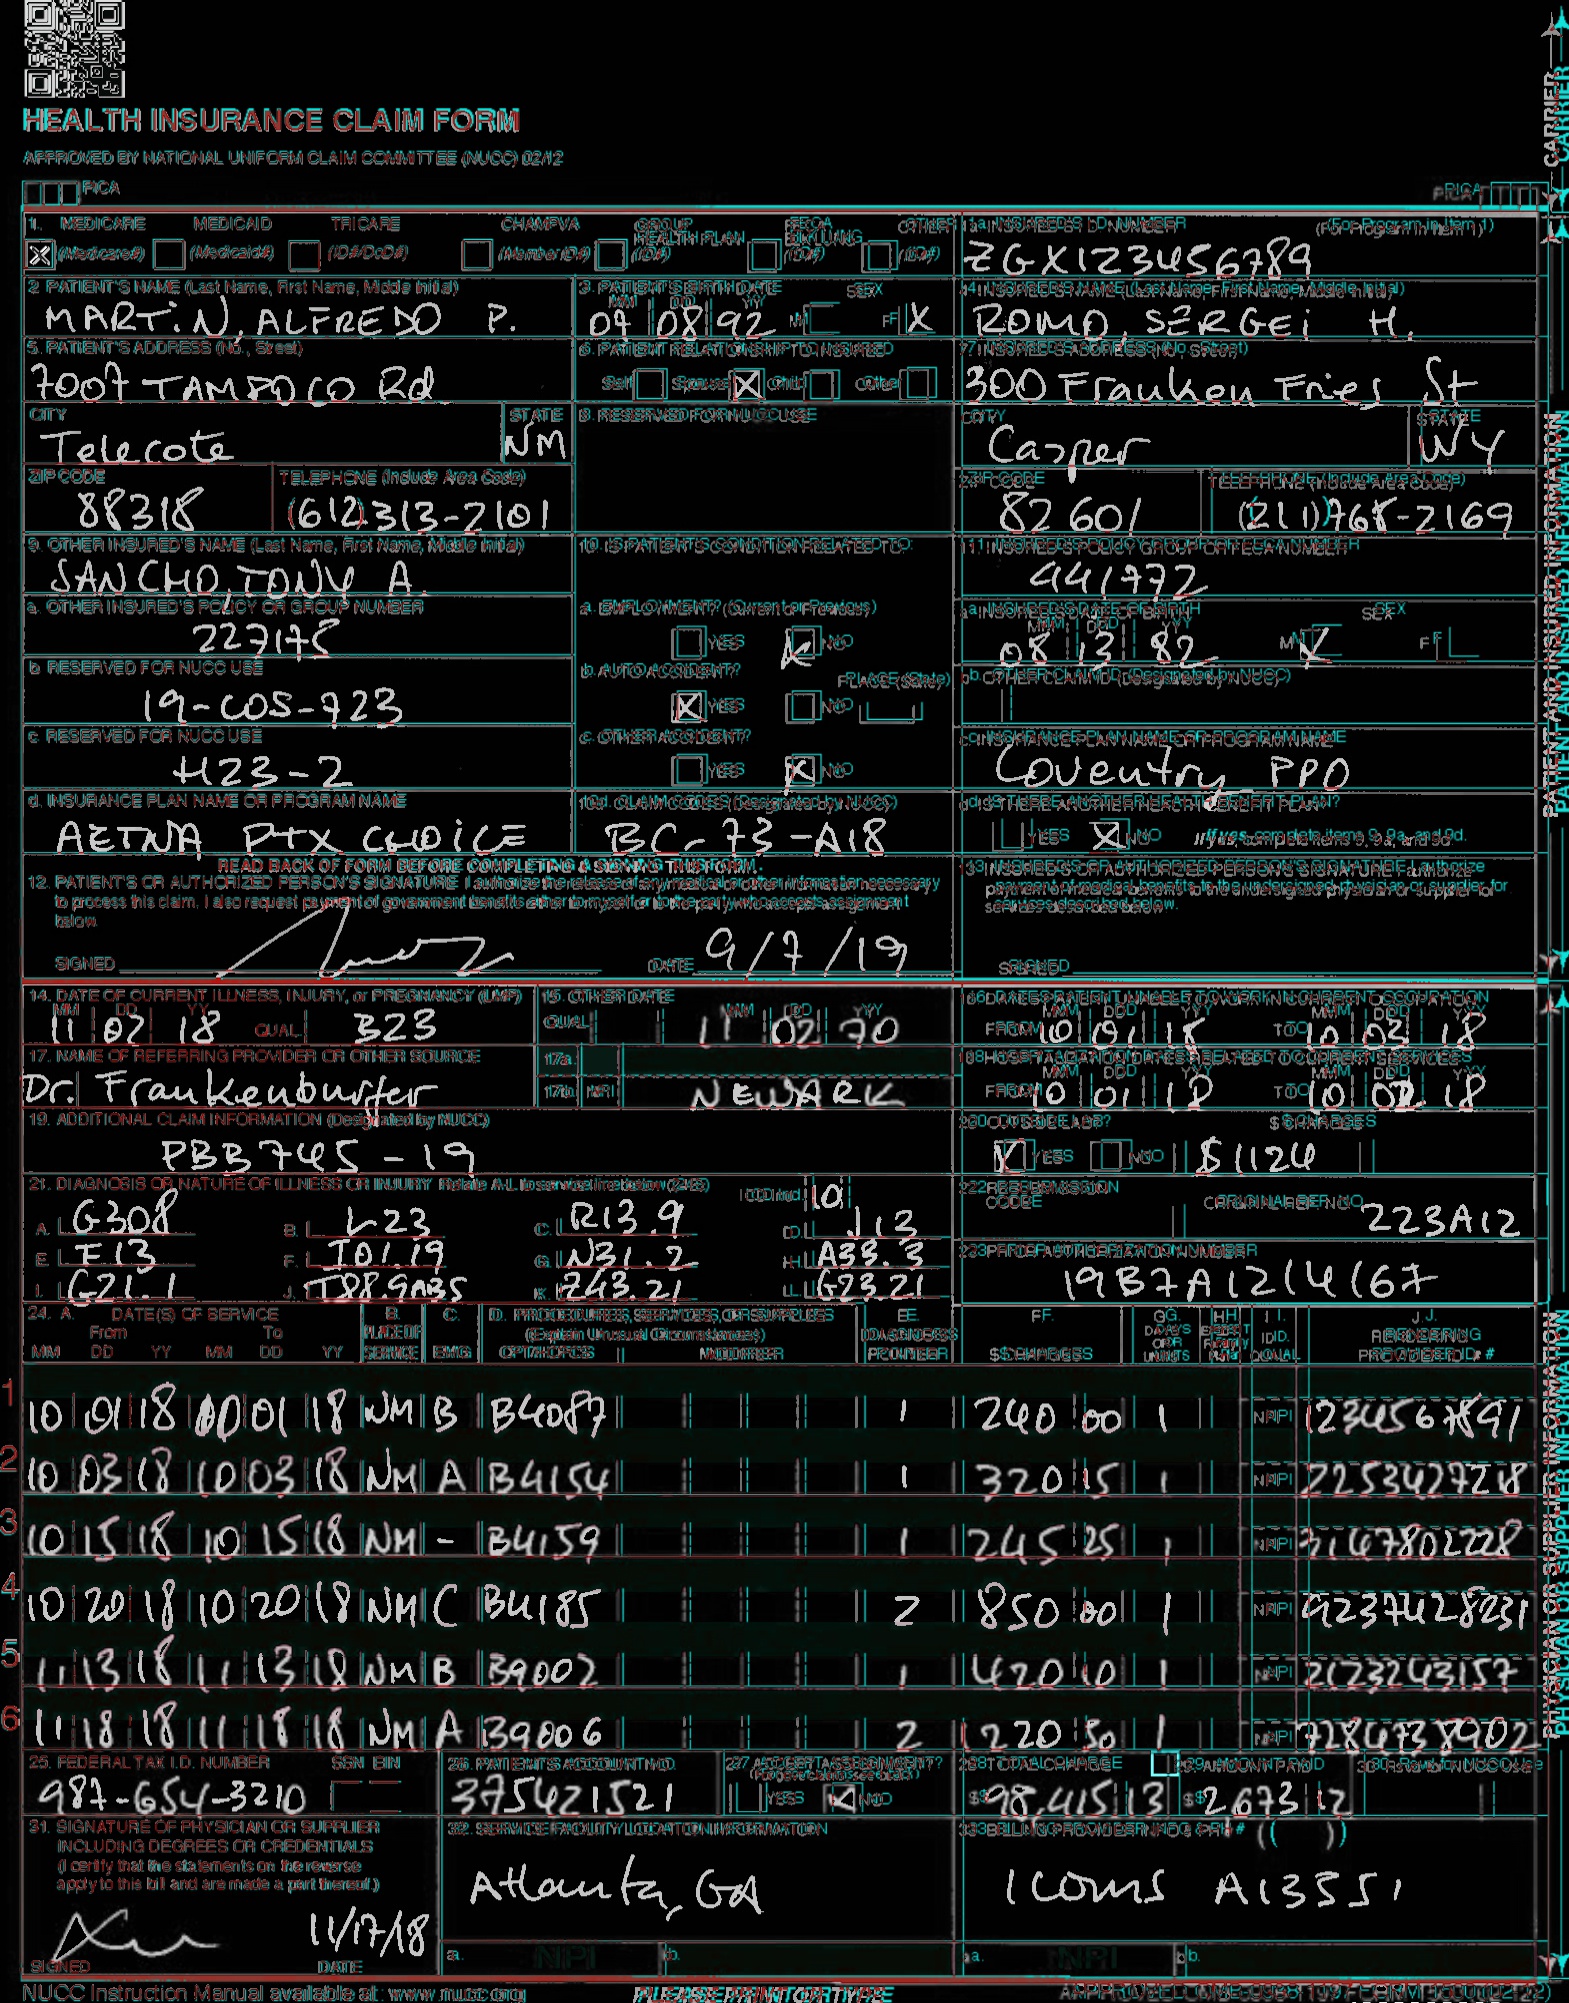 HEALTH INSURANCE CLAIM FORM
APPROVED BY NATIONAL UNIFORM CLAIM COMMITTEE (NUCC) 02/12
PICA PICA
CARRIER
1. MEDICARE MEDICAID TRICARE CHAMPVA GROUP HEALTH PLAN FECA BLK LUNG OTHER
X (Medicare#) (Medicaid#) (ID#/DoD#) (Member ID#) (ID#) (ID#) (ID#)
1a. INSURED'S I.D. NUMBER (For Program in Item 1)
ZGX123456789
2. PATIENT'S NAME (Last Name, First Name, Middle Initial)
MARTIN, ALFREDO P.
3. PATIENT'S BIRTH DATE SEX
MM DD YY
07 08 92 M F X
4. INSURED'S NAME (Last Name, First Name, Middle Initial)
ROMO, SERGEI H.
5. PATIENT'S ADDRESS (No., Street)
7007 TAMPOCO Rd
6. PATIENT RELATIONSHIP TO INSURED
Self Spouse X Child Other
7. INSURED'S ADDRESS (No., Street)
300 Franken Fries St
CITY STATE
Telecote NM
8. RESERVED FOR NUCC USE
CITY STATE
Casper WY
ZIP CODE TELEPHONE (Include Area Code)
88318 (612) 313-2101
ZIP CODE TELEPHONE (Include Area Code)
82601 (211) 768-2169
9. OTHER INSURED'S NAME (Last Name, First Name, Middle Initial)
SANCHO, TONY A.
10. IS PATIENT'S CONDITION RELATED TO:
11. INSURED'S POLICY GROUP OR FECA NUMBER
441772
a. OTHER INSURED'S POLICY OR GROUP NUMBER
227178
a. EMPLOYMENT? (Current or Previous)
YES X NO
a. INSURED'S DATE OF BIRTH SEX
MM DD YY
08 13 82 M X F
b. RESERVED FOR NUCC USE
19-COS-723
b. AUTO ACCIDENT? PLACE (State)
X YES NO
b. OTHER CLAIM ID (Designated by NUCC)
c. RESERVED FOR NUCC USE
H23-2
c. OTHER ACCIDENT?
YES X NO
c. INSURANCE PLAN NAME OR PROGRAM NAME
Coventry PPO
d. INSURANCE PLAN NAME OR PROGRAM NAME
AETNA PTX CHOICE
10d. CLAIM CODES (Designated by NUCC)
BC-73-A18
d. IS THERE ANOTHER HEALTH BENEFIT PLAN?
YES X NO If yes, complete items 9, 9a, and 9d.
READ BACK OF FORM BEFORE COMPLETING & SIGNING THIS FORM.
12. PATIENT'S OR AUTHORIZED PERSON'S SIGNATURE I authorize the release of any medical or other information necessary
to process this claim. I also request payment of government benefits either to myself or to the party who accepts assignment
below.
SIGNED DATE 9/7/19
13. INSURED'S OR AUTHORIZED PERSON'S SIGNATURE I authorize
payment of medical benefits to the undersigned physician or supplier for
services described below.
SIGNED
PATIENT AND INSURED INFORMATION
14. DATE OF CURRENT ILLNESS, INJURY, or PREGNANCY (LMP)
MM DD YY
11 02 18 QUAL. 323
15. OTHER DATE
QUAL. MM DD YY
11 02 70
16. DATES PATIENT UNABLE TO WORK IN CURRENT OCCUPATION
MM DD YY MM DD YY
FROM 10 01 18 TO 10 03 18
17. NAME OF REFERRING PROVIDER OR OTHER SOURCE
Dr. Frankenburger
17a.
17b. NPI NEWARK
18. HOSPITALIZATION DATES RELATED TO CURRENT SERVICES
MM DD YY MM DD YY
FROM 10 01 18 TO 10 02 18
19. ADDITIONAL CLAIM INFORMATION (Designated by NUCC)
PBB745-19
20. OUTSIDE LAB? $ CHARGES
X YES NO $1124
21. DIAGNOSIS OR NATURE OF ILLNESS OR INJURY Relate A-L to service line below (24E) ICD Ind. 10
A. G308 B. L23 C. R13.9 D. J13
E. F13 F. I01.19 G. N31.2 H. A33.3
I. G21.1 J. T88.9A35 K. Z43.21 L. G23.21
22. RESUBMISSION CODE ORIGINAL REF. NO.
223A12
23. PRIOR AUTHORIZATION NUMBER
19B7A1214167
24. A. DATE(S) OF SERVICE B. C. D. PROCEDURES, SERVICES, OR SUPPLIES E. F. G. H. I. J.
From To PLACE OF (Explain Unusual Circumstances) DIAGNOSIS DAYS OR EPSDT ID. RENDERING
MM DD YY MM DD YY SERVICE EMG CPT/HCPCS MODIFIER POINTER $ CHARGES UNITS Family Plan QUAL. PROVIDER ID. #
1 10 01 18 10 01 18 NM B B4087 1 240 00 1 NPI 1234567891
2 10 03 18 10 03 18 NM A B4154 1 320 15 1 NPI 2253427218
3 10 15 18 10 15 18 NM - B4159 1 245 25 1 NPI 3147802228
4 10 20 18 10 20 18 NM C B4185 2 850 00 1 NPI 9237428231
5 11 13 18 11 13 18 NM B B9002 1 420 10 1 NPI 2123243157
6 11 18 18 11 18 18 NM A B9006 2 1220 30 1 NPI 7284738902
25. FEDERAL TAX I.D. NUMBER SSN EIN
987-654-3210
26. PATIENT'S ACCOUNT NO.
375421521
27. ACCEPT ASSIGNMENT?
(For govt. claims, see back)
YES X NO
28. TOTAL CHARGE
$ 98,415 13
29. AMOUNT PAID
$ 2,673 12
30. Rsvd for NUCC Use
31. SIGNATURE OF PHYSICIAN OR SUPPLIER
INCLUDING DEGREES OR CREDENTIALS
(I certify that the statements on the reverse
apply to this bill and are made a part thereof.)
11/17/18
SIGNED DATE
32. SERVICE FACILITY LOCATION INFORMATION
Atlanta, GA
a. NPI b.
33. BILLING PROVIDER INFO & PH # ( )
Icoms A13551
a. NPI b.
PHYSICIAN OR SUPPLIER INFORMATION
NUCC Instruction Manual available at: www.nucc.org
PLEASE PRINT OR TYPE